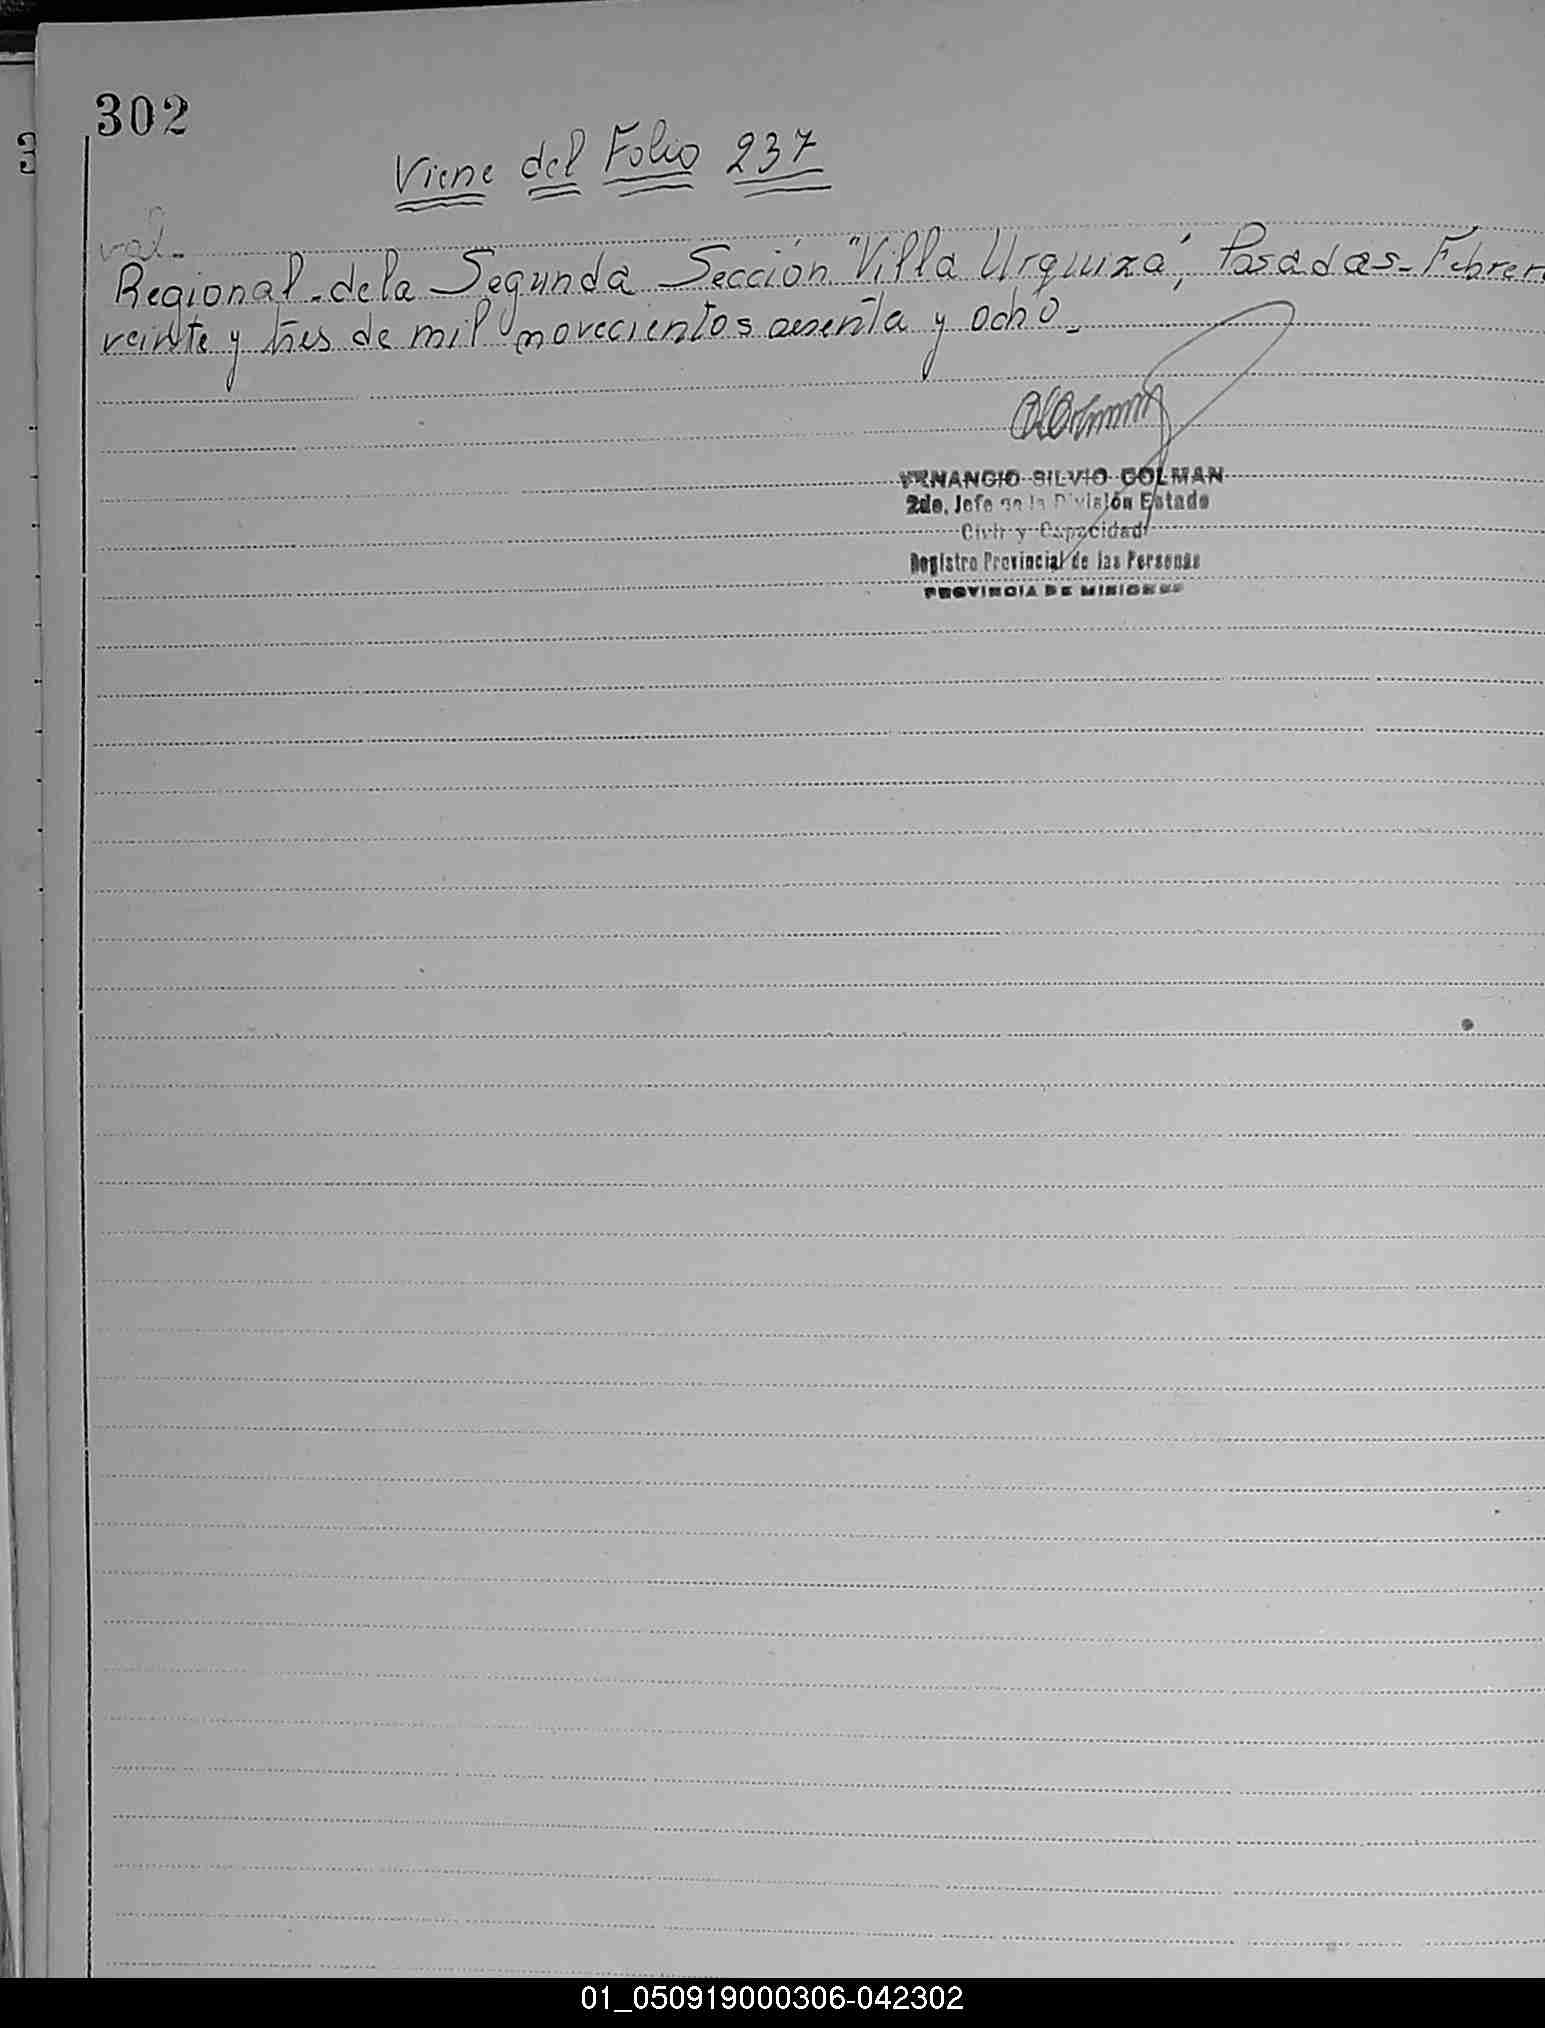 302
Viene del Folio 237
val.-
Regional - de la Segunda Sección "Villa Urquiza", Posadas - Febrer
veinte y tres de mil novecientos sesenta y ocho.-
VENANCIO SILVIO COLMAN
2do. Jefe de la División Estado
Civil y Capacidad
Registro Provincial de las Personas
PROVINCIA DE MISIONES
01_050919000306-042302